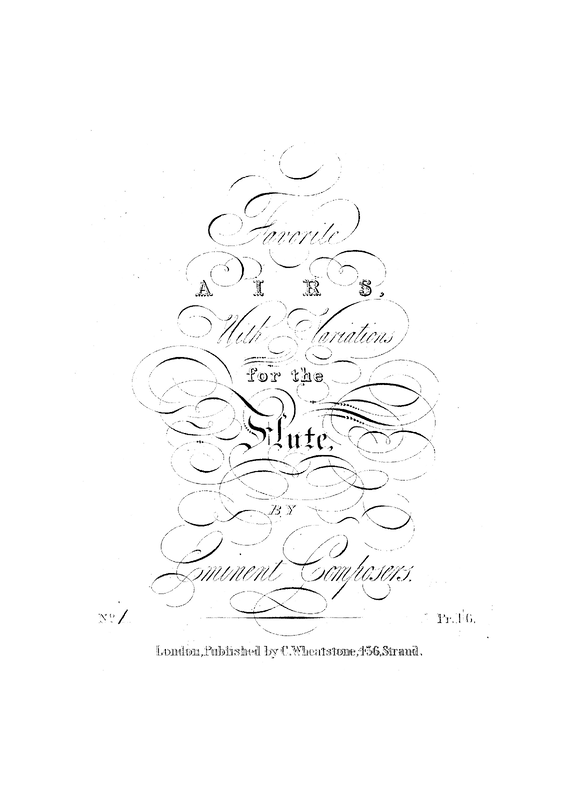 Favorite
AIRS,
With Variations
for the
Flute,
BY
Eminent Composers.
No. 1 Pr. 1/6.
London, Published by C. Wheatstone, 436, Strand.